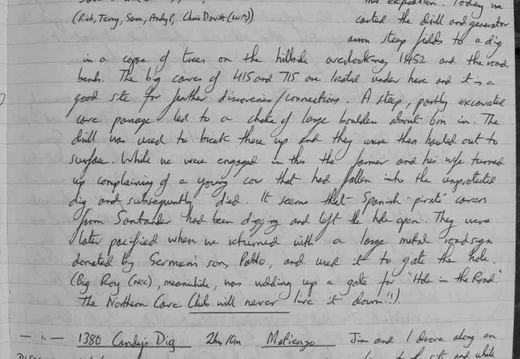 (Rick, Terry, Sam, Andy P, Chris
this expedition. Today we
carted the drill and generator
steep fields to a dig
in a copse of trees on the hillside overlooking 1452 and the road
bends. The big caves of 415 and 715 are located under here and it is a
good site for further discoveries/connections. A steep, partly excavated
cave passage led to a choke of large boulders about 6m in. The
drill was used to break these up and they were then hauled out to
surface. While we were engaged in this the farmer and his wife turned
up complaining of a young cow that had fallen into the unprotected
dig and subsequently died. It seems that Spanish "pirate" cavers
from Santander had been digging and left the hole open. They were
later pacified when we returned with a large metal roadsign
donated by German's son, Pablo, and used it to gate the hole.
(Big Roy (NCC), meanwhile, was welding up a gate for "Hole in the Road".
The Northern Cave Club will never live it down!!).
— " — 1380 Candy's Dig 2hr 10m Matienzo Jim and I drove along an
and while